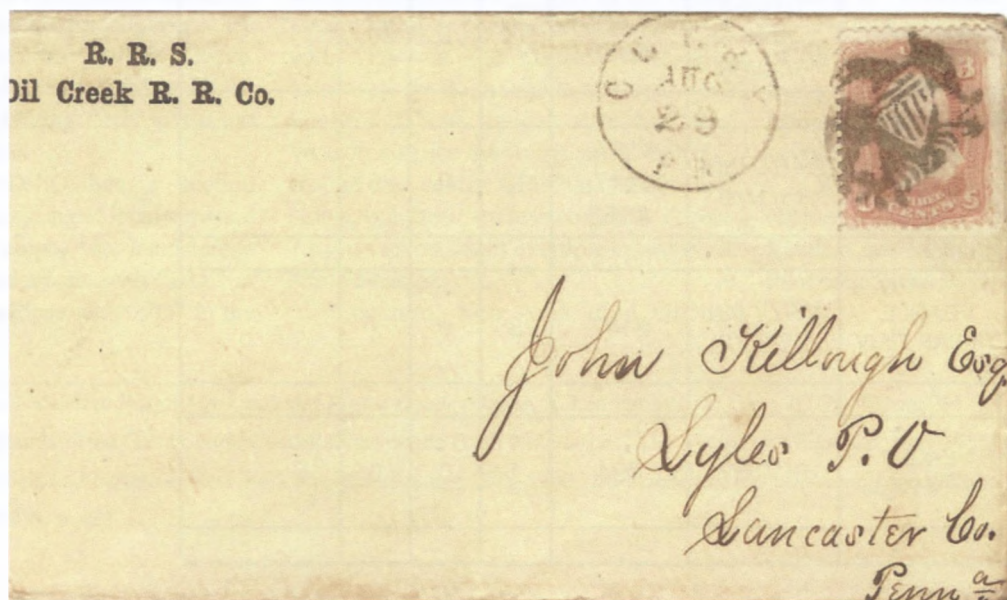 R. R. S.
Oil Creek R. R. Co.
CORRY
AUG
29
PA
3
CENTS
John Killough Esq
Lyles P.O
Lancaster Co.
Penn a